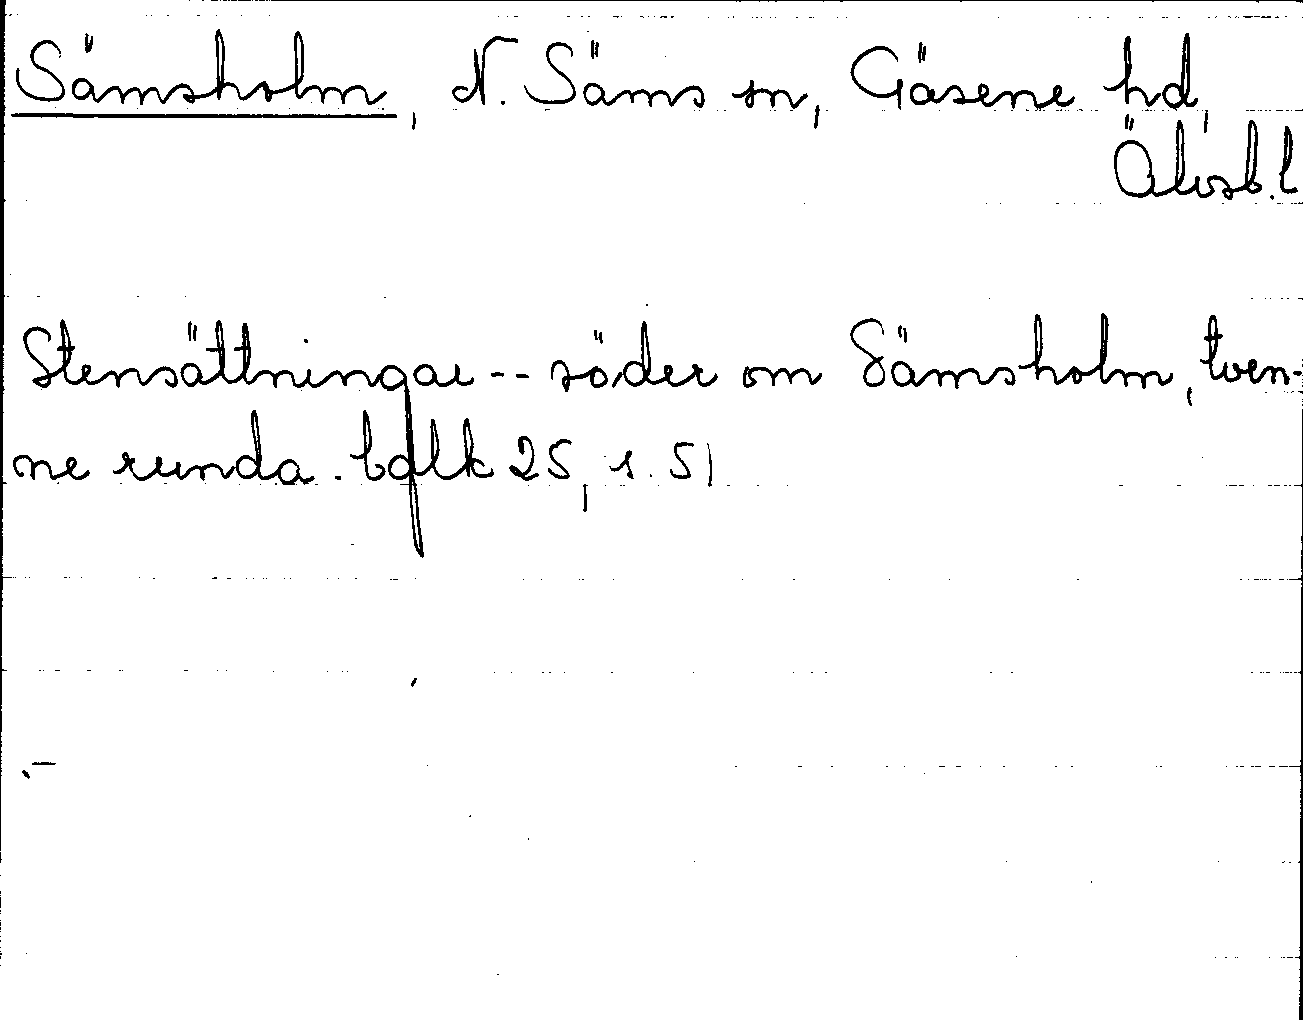 Sämsholm, N. Säms sn, Gäsene hd,
Älvsb. l
Stensättningar -- söder om Sämsholm, tven-
ne runda. balk 25, s. 51